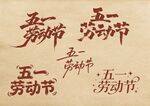 五一
劳动节
五一
劳动节
五一
劳动节
五一
劳动节
五一
劳动节